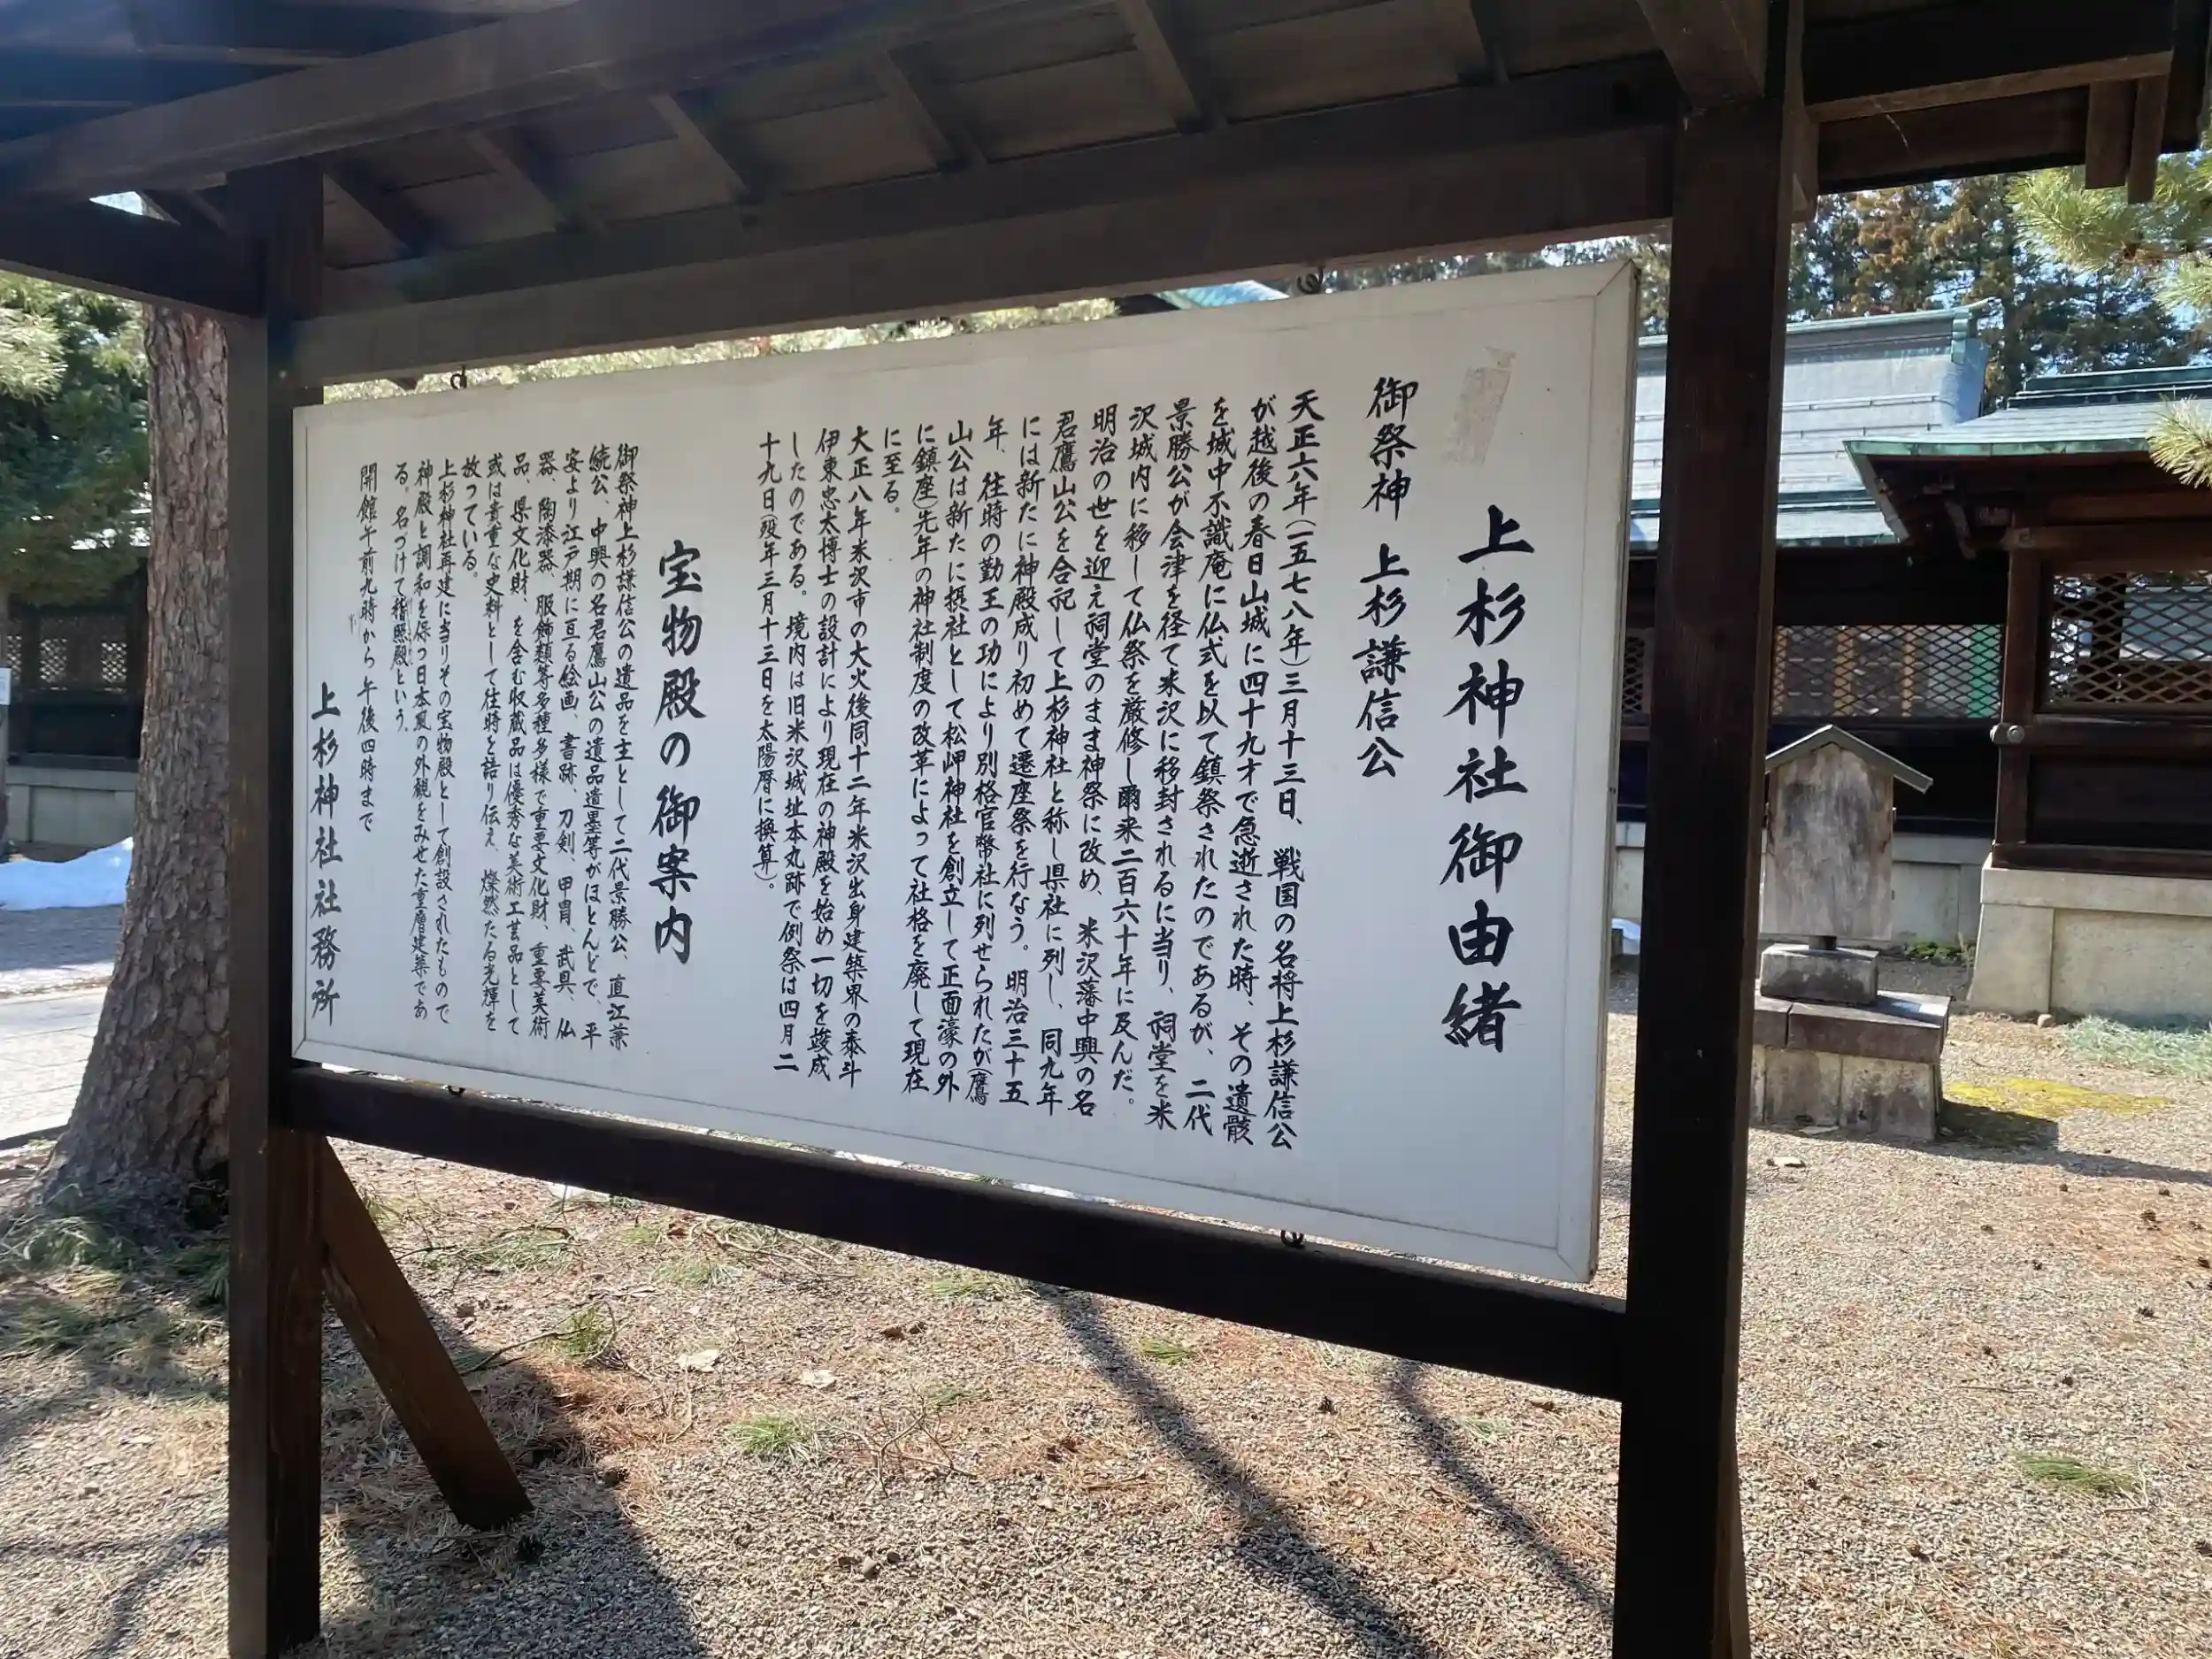 上杉神社御由緒
御祭神 上杉謙信公
天正六年(一五七八年)三月十三日、戦国の名将上杉謙信公
が越後の春日山城に四十九才で急逝された時、その遺骸
を城中不識庵に仏式を以て鎮祭されたのであるが、二代
景勝公が会津を経て米沢に移封されるに当り、祠堂を米
沢城内に移して仏祭を厳修し爾来二百六十年に及んだ。
明治の世を迎え祠堂のまま神祭に改め、米沢藩中興の名
君鷹山公を合祀して上杉神社と称し県社に列し、同九年
には新たに神殿成り初めて遷座祭を行なう。明治三十五
年、往時の勤王の功により別格官幣社に列せられたが(鷹
山公は新たに摂社として松岬神社を創立して正面濠の外
に鎮座)先年の神社制度の改革によって社格を廃して現在
に至る。
大正八年米沢市の大火後同十二年米沢出身建築界の泰斗
伊東忠太博士の設計により現在の神殿を始め一切を竣成
したのである。境内は旧米沢城址本丸跡で例祭は四月二
十九日(歿年三月十三日を太陽暦に換算)。
宝物殿の御案内
御祭神上杉謙信公の遺品を主として二代景勝公、直江兼
続公、中興の名君鷹山公の遺品遺墨等がほとんどで、平
安より江戸期に亘る絵画、書跡、刀剣、甲冑、武具、仏
器、陶漆器、服飾類等多種多様で重要文化財、重要美術
品、県文化財、を含む収蔵品は優秀な美術工芸品として
或は貴重な史料として往時を語り伝え、燦然たる光輝を
放っている。
上杉神社再建に当りその宝物殿として創設されたもので
神殿と調和を保つ日本風の外観をみせた重層建築であ
る。名づけて稽照殿という。
開館午前九時から午後四時まで
上杉神社社務所